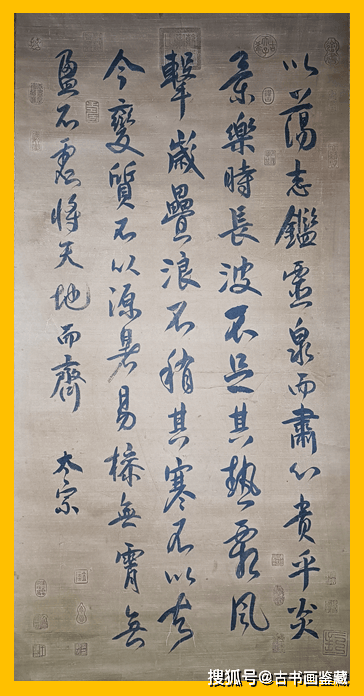 以蕩志鑑靈泉而肅心貴乎炎
景樂時長波不足其熱霜風
擊嚴疊浪不稍其寒不以古
今變質不以涼暑易操無霄無
盈不虛將天地而齊
太宗
搜狐号@古书画鉴藏